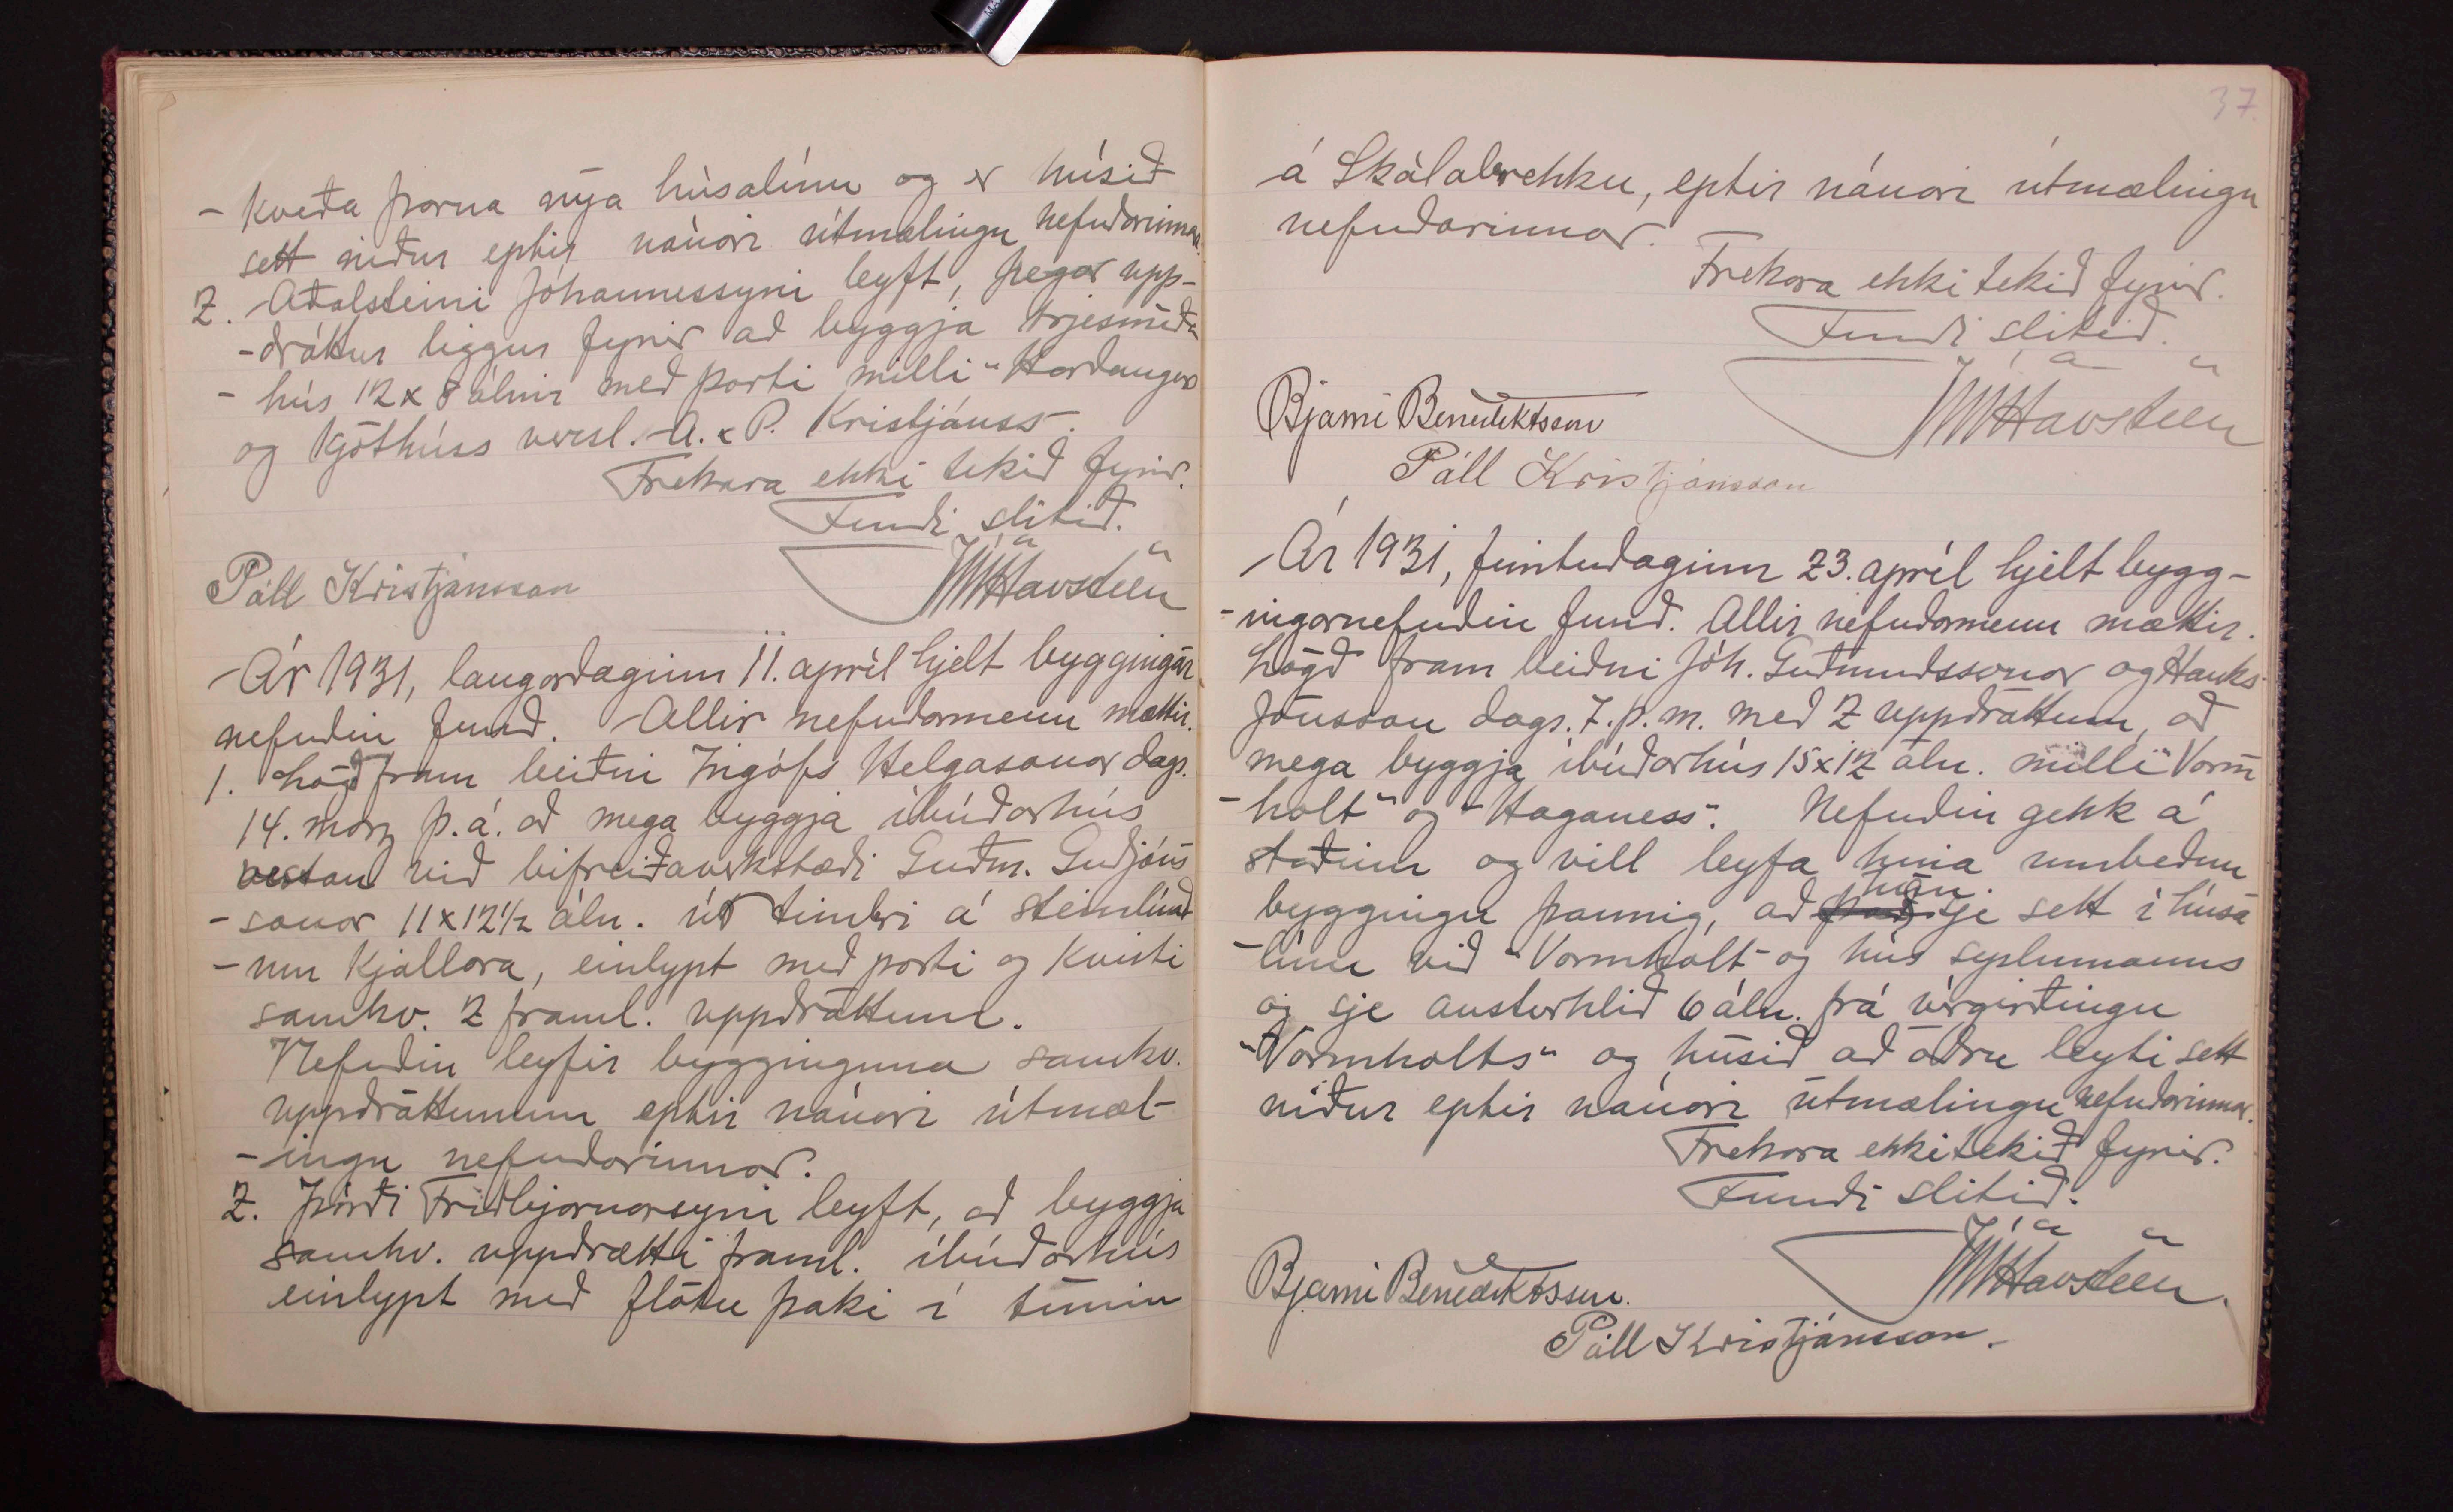 - kveða þarna nýja húsalínu og er húsið
sett niður eptir nánari útmælingu nefndarinnar.
2. Aðalsteini Jóhannessyni leyft, þegar upp-
-dráttur liggur fyrir að byggja trjesmíða
- hús 12 x 8 álnir með porti milli "Hardanger
og Kjöthúss versl. A. & P. Kristjánss.
Frekara ekki tekið fyrir.
Fundi slitið.
JulHavsteen
Páll Kristjánsson
Ár 1931, laugardaginn 11. apríl hjelt byggingar
nefndin fund. Allir nefndarmenn mættir.
1. Lögð fram beiðni Ingólfs Helgasonar dags.
14. marz þ.á. að mega byggja íbúðarhús
vestan við bifreiðaverkstæði Guðm. Guðjóns
- sonar 11 x 12 1/2 áln. úr timbri á steinlímd
- um kjallara, einlypt með porti og kvisti
samkv. 2 framl. uppdráttum.
Nefndin leyfir bygginguna samkv.
uppdráttunum eptir nánari útmæl-
- ingu nefndarinnar.
2. Þórði Friðbjarnarsyni leyft, að byggja
samkv. uppdrætti framl. íbúðarhús
einlypt með flötu þaki í túnin
37.
á Skálabrekku, eptir nánari útmælingu
nefndarinnar.
Frekara ekki tekið fyrir.
Fundi slitið.
JulHavsteen
Bjarni Benediktsson
Páll Kristjánsson
Ár 1931, fimtudaginn 23. apríl hjelt bygg-
- ingarnefndin fund. Allir nefndarmenn mættir.
Lögð fram beiðni Jóh. Guðmundssonar og Hauks
Jónsson dags. 7. þ.m. með 2 uppdráttum, að
mega byggja íbúðarhús 15 x 12 áln. milli "Varm
- holt" og "Haganess". Nefndin gekk á
staðinn og vill leyfa hina umbeðnu
hún
byggingu þannig, að það sje sett í húsa
- línu við "Varmholt" og hús sýslumanns
og sje austurhlið 6 áln. frá vírgirðingu
"Varmholts" og húsið að öðru leyti sett
niður eptir nánari útmælingu nefndarinnar.
Frekara ekki tekið fyrir.
Fundi slitið.
JulHavsteen.
Bjarni Benediktsson.
Páll Kristjánsson.